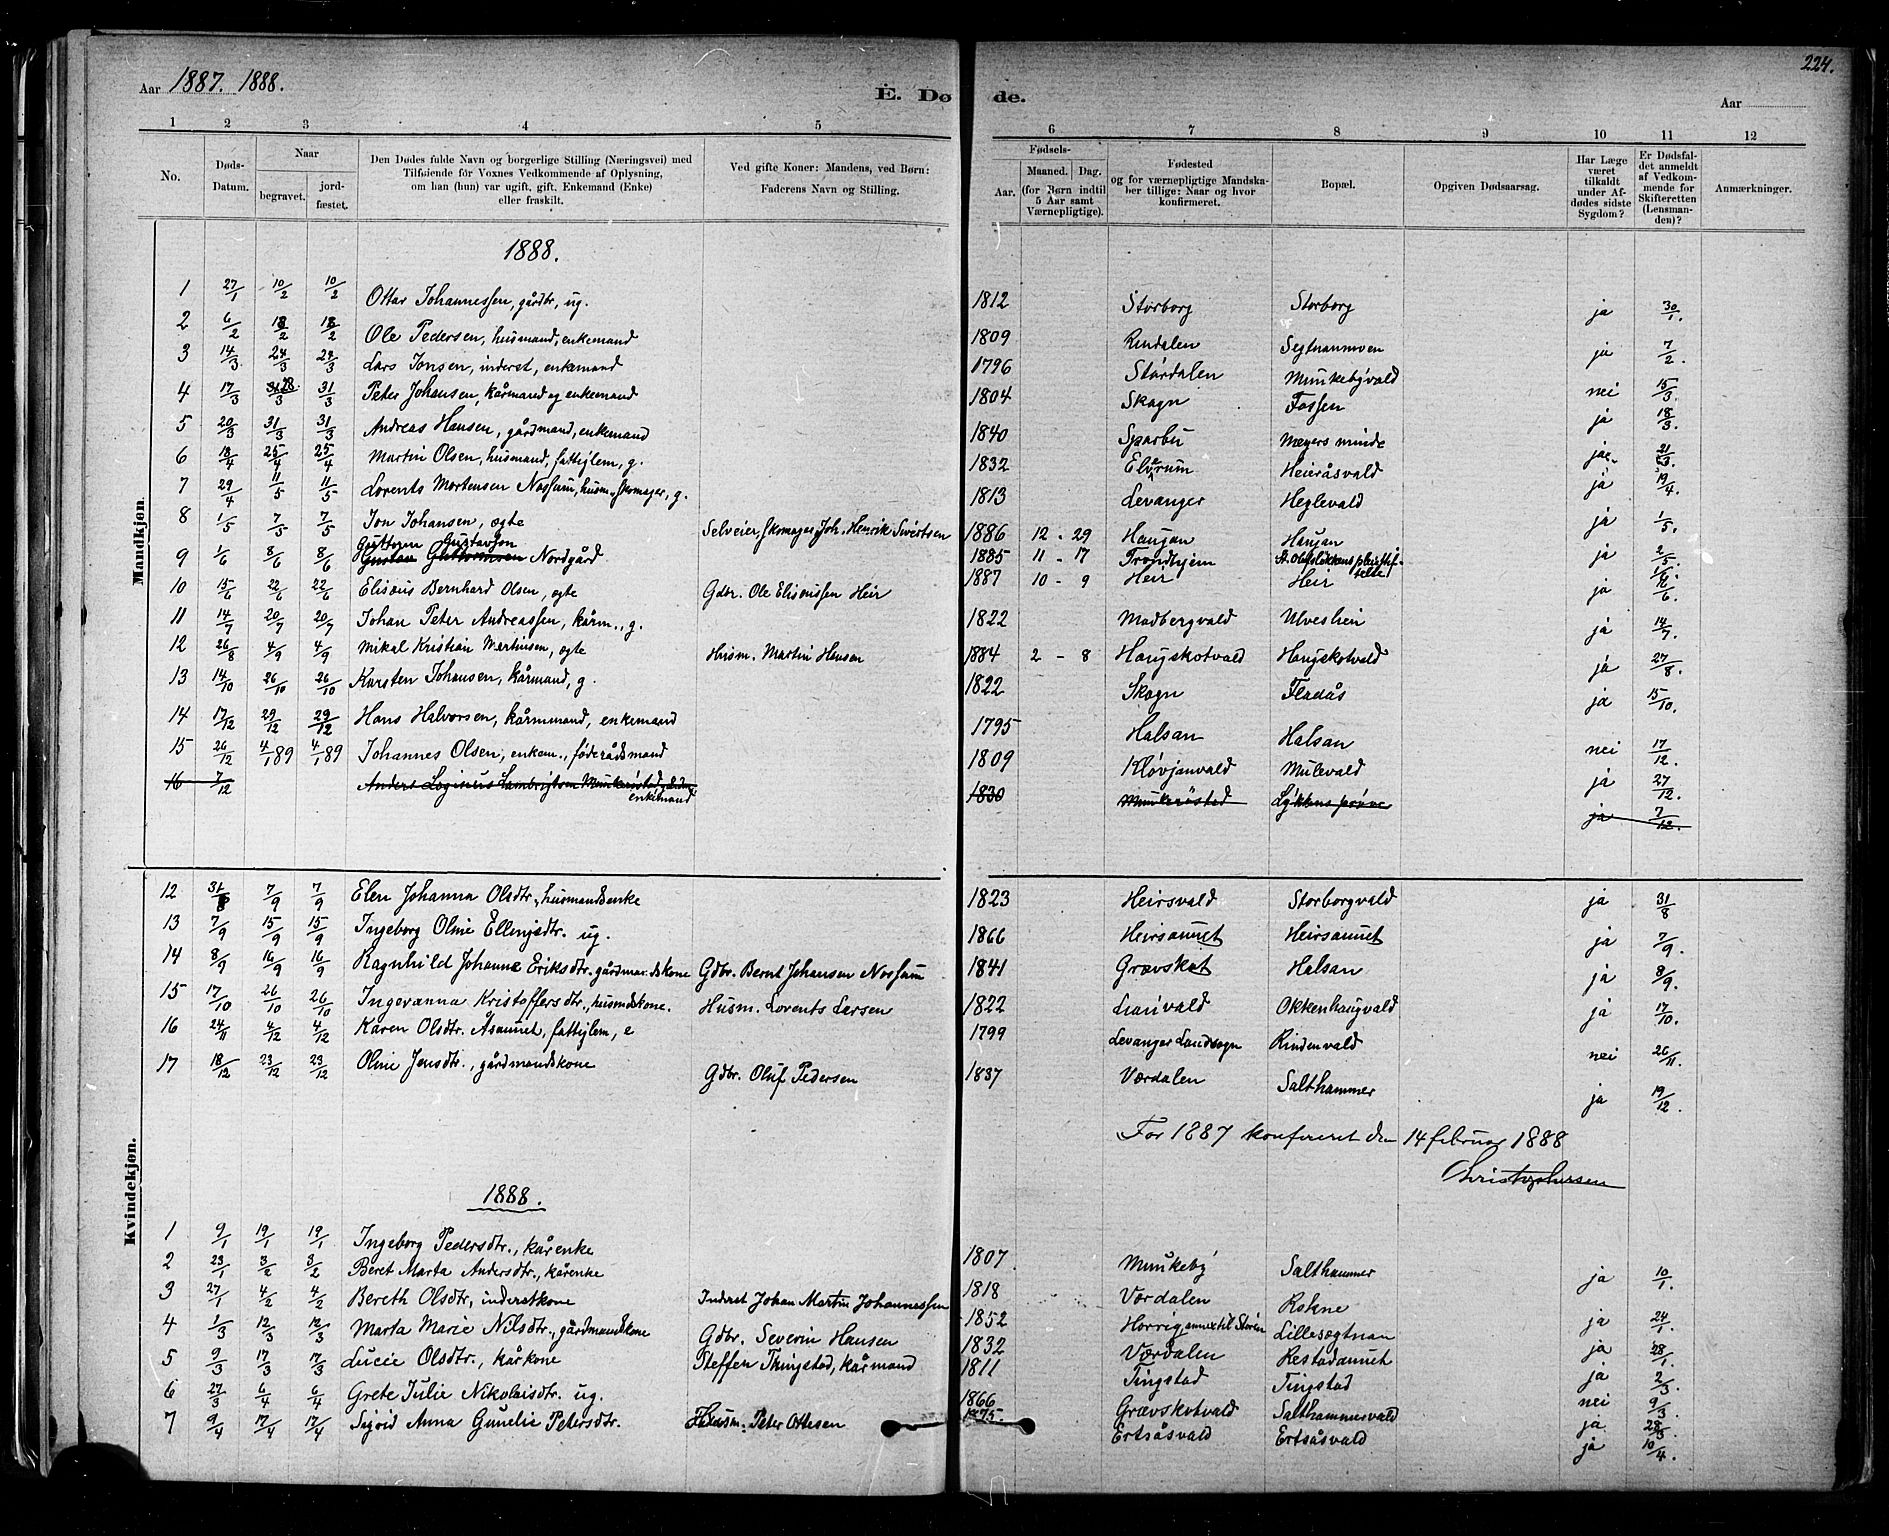 Aar 1887. 1888.
E. Dø de.
Aar
224.
1 2 3 4 5 6 7 8 9 10 11 12
No.
Døds-Datum.
Naar
begravet.
jord-fæstet.
Den Dødes fulde Navn og borgerlige Stilling (Næringsvei) med
Tilføiende for Voxnes Vedkommende af Oplysning,
om han (hun) var ugift, gift, Enkemand (Enke)
eller fraskilt.
Ved gifte Koner: Mandens, ved Børn:
Faderens Navn og Stilling.
Fødsels-
Aar.
Maaned. Dag.
(for Børn indtil
5 Aar samt
Værnepligtige).
Fødested
og for værnepligtige Mandska-
ber tillige: Naar og hvor
konfirmeret.
Bopæl.
Opgiven Dødsaarsag.
Har Læge
været
tilkaldt
under Af-
dødes sidste
Sygdom?
Er Dødsfal-
det anmeldt
af Vedkom-
mende for
Skifteretten
(Lensman-
den)?
Anmærkninger.
Mandkjøn.
1888.
1 27/1 10/2 10/2 Ottar Johannessen, gårdbr, ug. 1812 Storborg Storborg ja 30/1.
2 6/2 18/2 18/2 Ole Pedersen, husmand, enkemand 1809 Rindalen Segtnanmoen ja 7/2.
3 14/3 24/3 24/3 Lars Jonsen, inderst, enkemand 1796 Stördalen Munkebyvald nei 15/3.
4 17/3 28/3 31/3 Peter Johansen, kårmand og enkemand 1804 Skogn Fossen ja 18/3.
5 20/3 31/3 31/3 Andreas Hansen, gårdmand, enkemand 1840 Sparbu Meyers minde ja 21/3.
6 18/4 25/4 25/4 Martin Olsen, husmand, fattiglem, g. 1832 Elverum Heieråsvald ja 19/4.
7 29/4 11/5 11/5 Lorents Mortensen Nossum, husm. skomager, g. 1813 Levanger Heglevald ja 1/5.
8 1/5 7/5 7/5 Jon Johansen, ogte Selveier, skomager Joh. Henrik Sivertsen 1886 12 - 29 Haugan Haugan ja 2/5.
9 1/6 8/6 8/6 Guttorm Gustavsen Nordgård 1885 11 - 17 Trondhjem St. Olafsløkkens pleiestiftelse
10 15/6 22/6 22/6 Elisæus Bernhard Olsen, ogte Gdbr. Ole Eliseussen Heir 1887 10 - 9 Heir Heir ja 16/6.
11 14/7 20/7 20/7 Johan Peter Andreassen, kårm., g. 1822 Modbergvald Ulveslien ja 14/7.
12 26/8 4/9 4/9 Mikal Kristian Martinsen, ogte Husm. Martin Hansen 1884 2 - 8 Haugskotvald Haugskotvald ja 27/8.
13 14/10 26/10 26/10 Karsten Johansen, kårmand, g. 1822 Skogn Fladås ja 15/10.
14 17/12 29/12 29/12 Hans Halvorsen, kårmand, enkemand 1795 Halsan Halsan nei 17/12.
15 26/12 4/1 89 4/1 89 Johannes Olsen, enkem., føderådsmand 1809 Kløvjanvald Mulevald ja 27/12.
16 7/12 Anders Loginius Lambrigtsen Munkrøstad, enkemand 1830 Munkrøstad Lykkens prøve ja 7/12.
Kvindekjøn.
12 31/8 7/9 7/9 Elen Johanna Olsdtr., husmandsenke 1823 Heirsvald Storborgvald ja 31/8
13 7/9 15/9 15/9 Ingeborg Oline Ellengsdtr. ug. 1866 Heirsaunet Heirsaunet ja 7/9.
14 8/9 16/9 16/9 Ragnhild Johanne Eriksdtr. gårdmandskone Gdbr. Bernt Johansen Nossum 1841 Grævskot Halsan ja 8/9.
15 17/10 26/10 26/10 Ingevanna Kristoffersdtr., husmdskone. Husm. Lorents Larsen 1822 Lianvald Okkenhaugvald ja 17/10.
16 24/11 4/12 4/12 Karen Olsdtr. Åsaunet, fattiglem, e 1799 Levanger Landsogn Rindenvald nei 26/11.
17 18/12 23/12 23/12 Oline Jensdtr., gårdmandskone Gdbr. Oluf Pedersen 1837 Værdalen Salthammer ja 19/12.
For 1887 konfereret den 14 februar 1888
Christophersen
1888.
1 9/1 19/1 19/1 Ingeborg Pedersdtr., kårenke 1807 Munkeby Salthammer ja 10/1.
2 23/1 3/2 3/2 Beret Marta Andersdtr., kårenke 1818 Værdalen Rekne ja 24/1.
3 27/1 4/2 4/2 Bereth Olsdtr, inderstkone Inderst Johan Martin Johannessen 1852 Horrig, annex til Støren Lillesegtnan ja 28/1.
4 1/3 12/3 12/3 Marta Marie Nilsdtr., gårdmandskone Gdbr. Severin Hansen 1832 Værdalen Restadaunet ja 2/3.
5 9/3 17/3 17/3 Lucie Olsdtr., kårkone Steffen Thingstad, kårmand 1811 Tingstad Tingstad nei 9/3.
6 27/3 6/4 6/4 Grete Julie Nikolaisdtr. ug. 1866 Grævskotvald Salthammervald ja 28/3
7 9/4 17/4 17/4 Sigrid Anna Gunelie Petersdtr. Husm. Peter Ottesen 1875. Ertsåsvald Ertsåsvald ja 10/4.